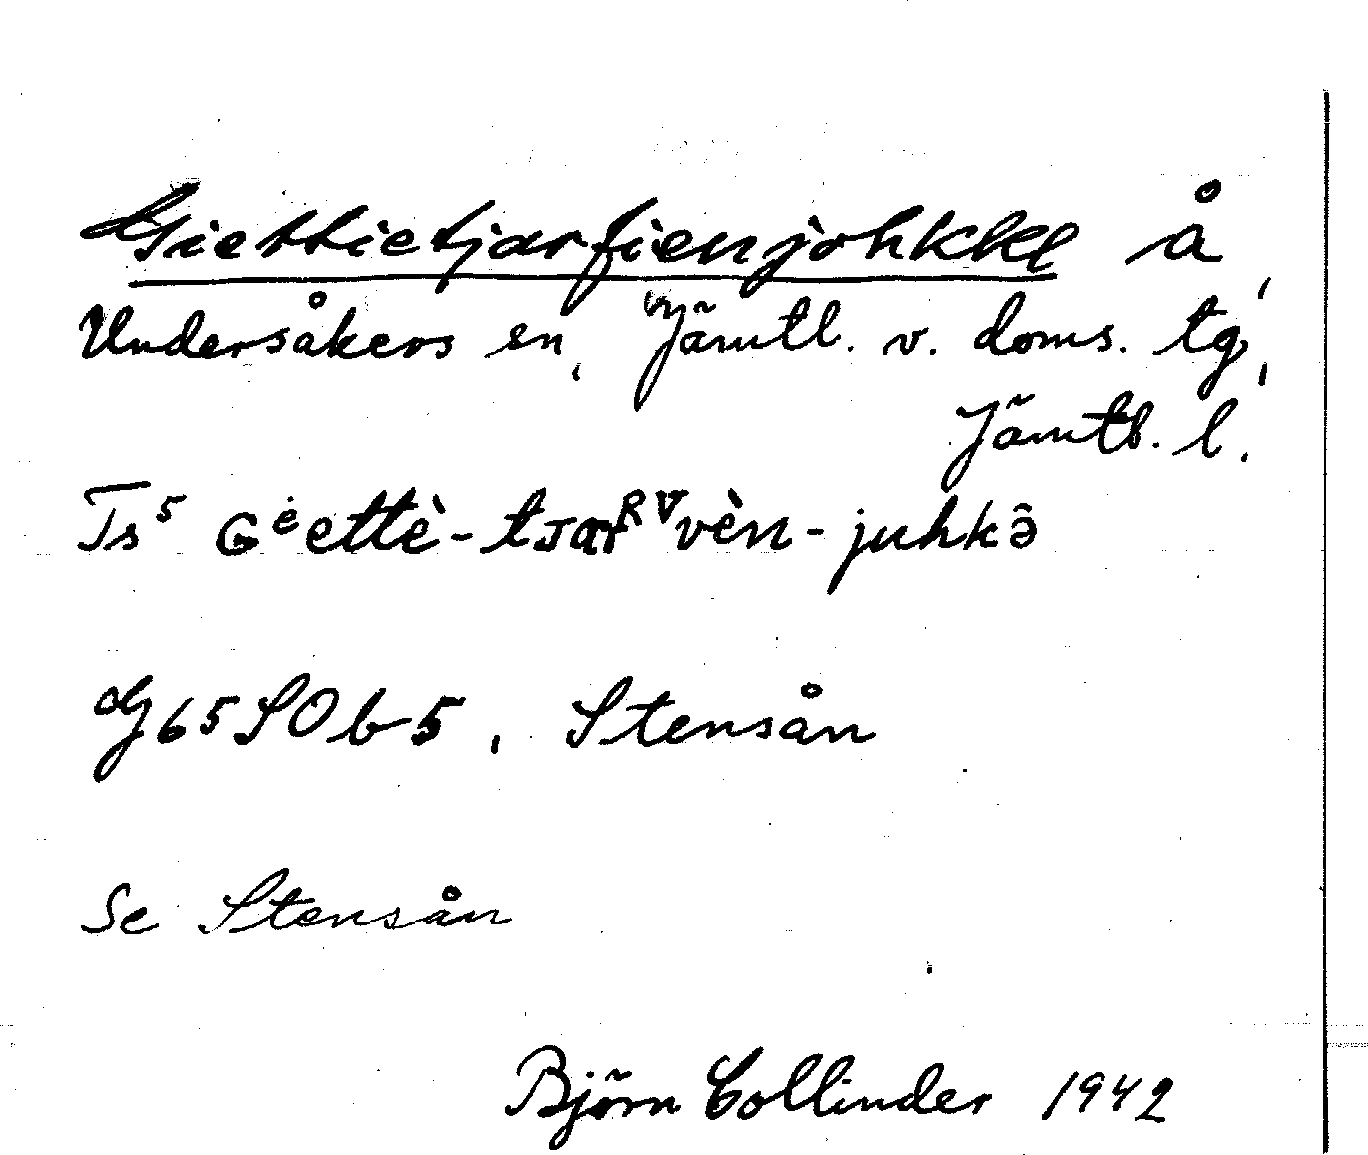 Giettietjarfienjohkke å,
Undersåkers sn, Jämtl. v. doms. tg,
Jämtl. l.
Ts⁵ Gėettè-tsarᴿⱽvèn-juhkə̂
G65SOb5, Stensån
Se Stensån
Björn Collinder 1942